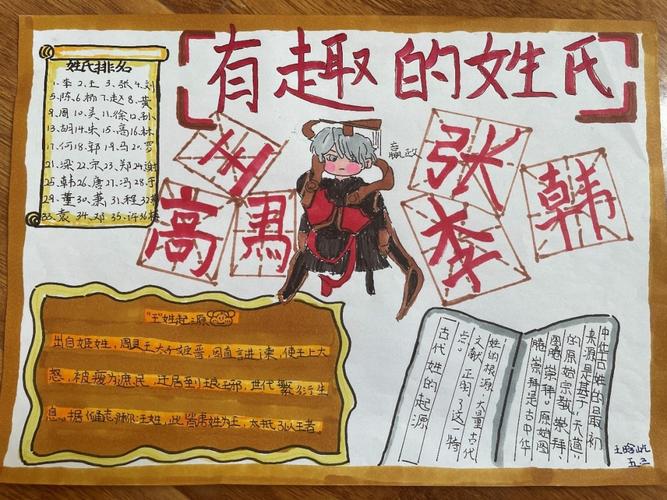 有趣的姓氏
姓氏排名
1.李 2.王 3.张 4.刘
5.陈 6.杨 7.赵 8.黄
9.周 10.吴 11.徐 12.孙
13.胡 14.朱 15.高 16.林
17.何 18.郭 19.马 20.罗
21.梁 22.宋 23.郑 24.谢
25.韩 26.唐 27.冯 28.于
29.董 30.萧 31.程 32.
33.袁 34.邓 35.许 36.
王
高
马
嬴政
张
李
韩
"王"姓起源
出自姬姓,周灵王太子姬晋,因直言进谏,使王上大
怒,被废为庶民,迁居到琅琊,世代繁衍生
息。据《通志》称王姓,此皆虏姓为王,太抵子以王者。
古代姓的起源
点。
文献正用了这一特
姓的根源,大量古代
中华古姓的最初
来源是基于"天道"
的原始宗教崇拜
图腾崇拜,原始图
腾崇拜是古中华
五三